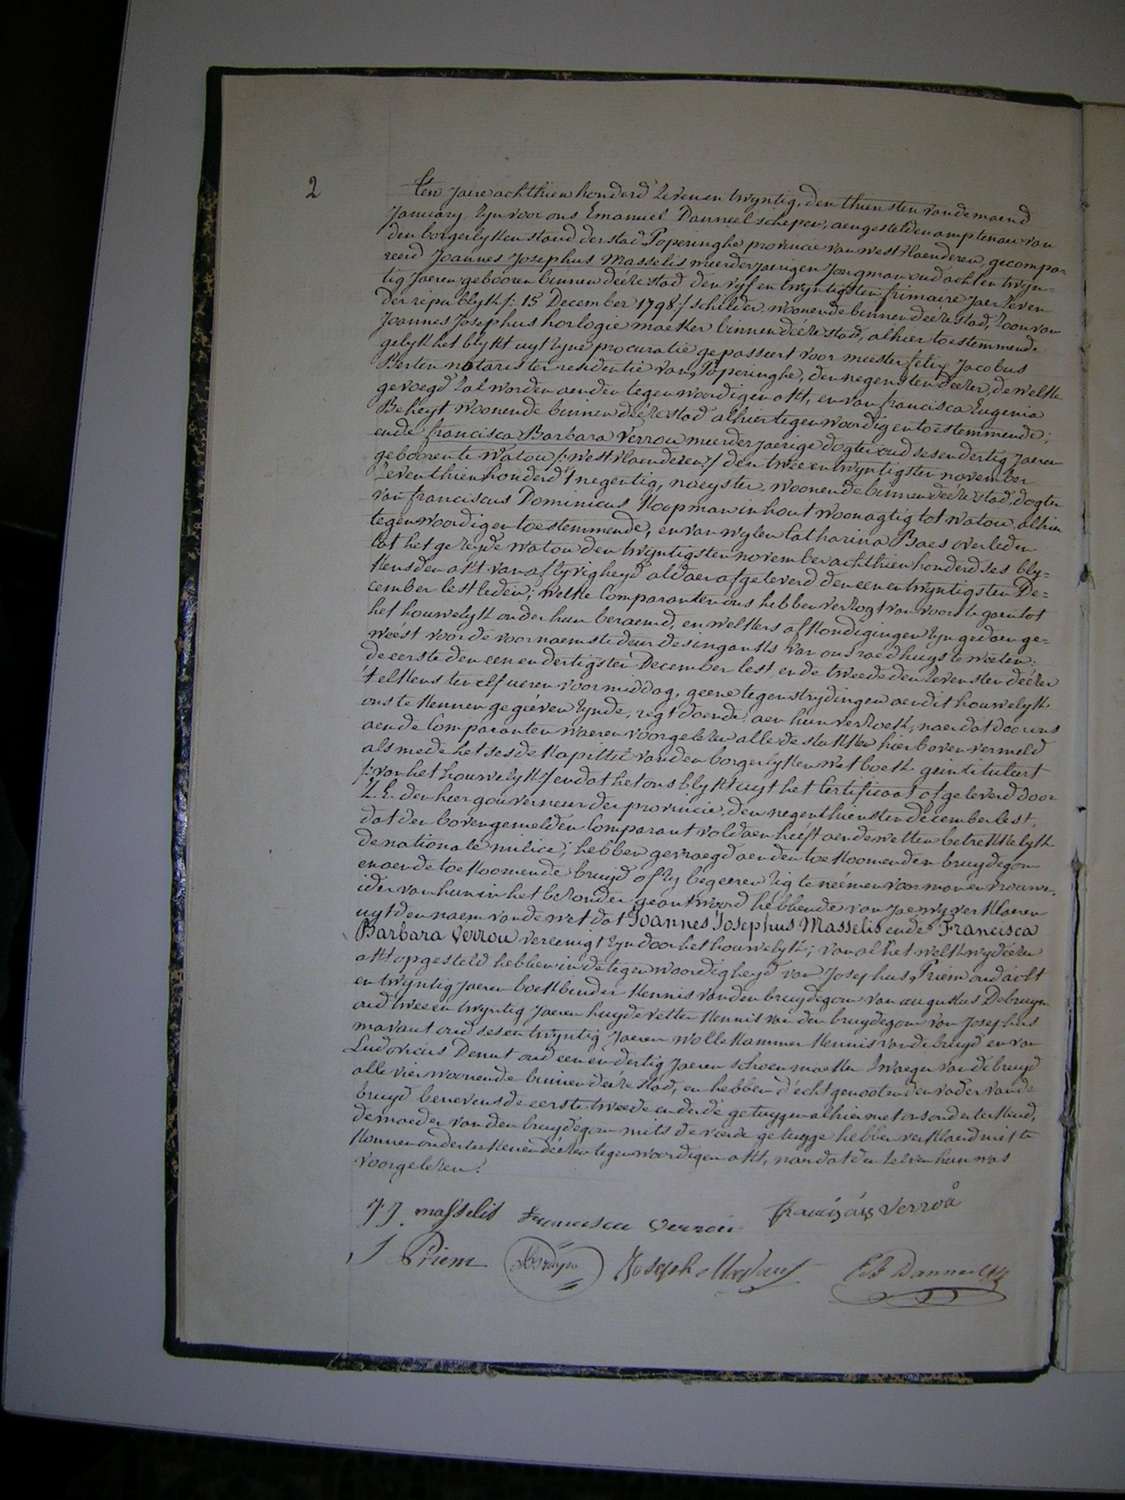 2
Ten jaere achthien honderd zeven en twyntig, den thiensten van de maend
January, zyn voor ons Emanuel Danneel schepen, aengestelden amptenaer van
den borgerlyken stand der stad Poperinghe provincie van westvlaenderen, gecompa-
reerd Joannes Josephus Masselis meerderjaerigen jongman oud achten twyn-
tig jaeren gebooren binnen deéze stad den vyf en twyntigsten frimaire jaer zeven
der republyk /: 15 December 1798 :/ schilder, woonende binnen deéze stad, zoon van
Joannes Josephus horlogie maeker binnen deéze stad, alhier toestemmende
gelyk het blykt uyt zyne procuratie gepasseert voor meester felix Jacobus
Berten notaris ter residentie van Poperinghe, den negensten deézer, de welke
gevoegd zal worden aen den tegenwoordigen akt, en van francisca Eugenia
Beheyt woonende binnen deéze stad alhier tegenwoordig en toestemmende;
ende francisca Barbara Verrou meerderjaerige dogter oud sesendertig jaeren
gebooren te Watou /: westvlaenderen :/ den twee en twyntigsten november
zeventhien honderd 't negentig, naeyster, woonende binnen deéze stad, dogter
van franciscus Dominicus Koopman in hout woonagtig tot watou, alhier
tegenwoordig en toestemmende, en van wylen Catharina Baes overleden
tot het gezeyde watou den twyntigsten november achthien honderd ses bly-
kens den akt van aflyvigheyd aldaer afgeleverd den eenentwyntigsten De-
cember lestleden; welke Comparanten ons hebben verzogt van voorts te gaen tot
het houwelyk onder hun beraemd, en welkers afkondigingen zyn gedaen ge-
weést voor de voornaemste deur des ingankx van ons raedhuys te weéten:
de eerste den een en dertigsten December lest, en de tweede den zevensten deézer
't elkens ten elf ueren voormiddag, geene tegenstrydingen aen dit houwelyk
ons te kennen gegeéven zynde, regt doende aen hun verzoek, naer dat door ons
aen de Comparanten waeren voorgelezen alle de stukken hier boven vermeld
als mede het sesde kapittel van den borgerlyken wetboek geintituleert
/: van het houwelyk :/ en dat het ons blykt uyt het Certificaet afgeleverd door
Z.E. den heer gouverneur der provincie, den negenthiensten december lest,
dat den bovengemelden Comparant voldaen heeft aen de wetten betrekkelyk
de nationale milice; hebben gevraegd aen den toekoomenden bruydegom
en aen de toekoomende bruyd of zy begeeren zig te neémen voor man en vrouw
ider van hun in het bezonder geantwoord hebbende van Jae wy verklaeren
uyt den naem van de wet dat Joannes Josephus Masselis ende Francisca
Barbara Verrou vereenigt zyn door het houwelyk; van al het welk wy deézen
akt opgesteld hebben in de tegenwoordigheyd van Josephus Priem oud acht
en twyntig jaeren boekbender kennis van den bruydegom van augustus Debruyn
oud twee en twyntig jaeren huydevetter kennis van den bruydegom van Josephus
mavaut oud sesentwyntig Jaeren wollekammer kennis van de bruyd en van
Ludovicus Denut oud een en dertig jaeren schoenmaeker zwager van de bruyd
alle vier woonende binnen deéze stad, en hebben d'echtgenooten den vader van de
bruyd benevens de eerste tweede en derde getuygen alhier met ons onderteekend,
de moeder van den bruydegom mits de vierde getuyge hebben verklaerd niet te
konnen onderteekenen deézen tegenwoordigen akt, naer dat den zelven hun was
voorgelezen.
J. J. masselis Francisca verrou franciscus verrou
J Priem ADebruyn Joseph Mavaut Eb Danneel